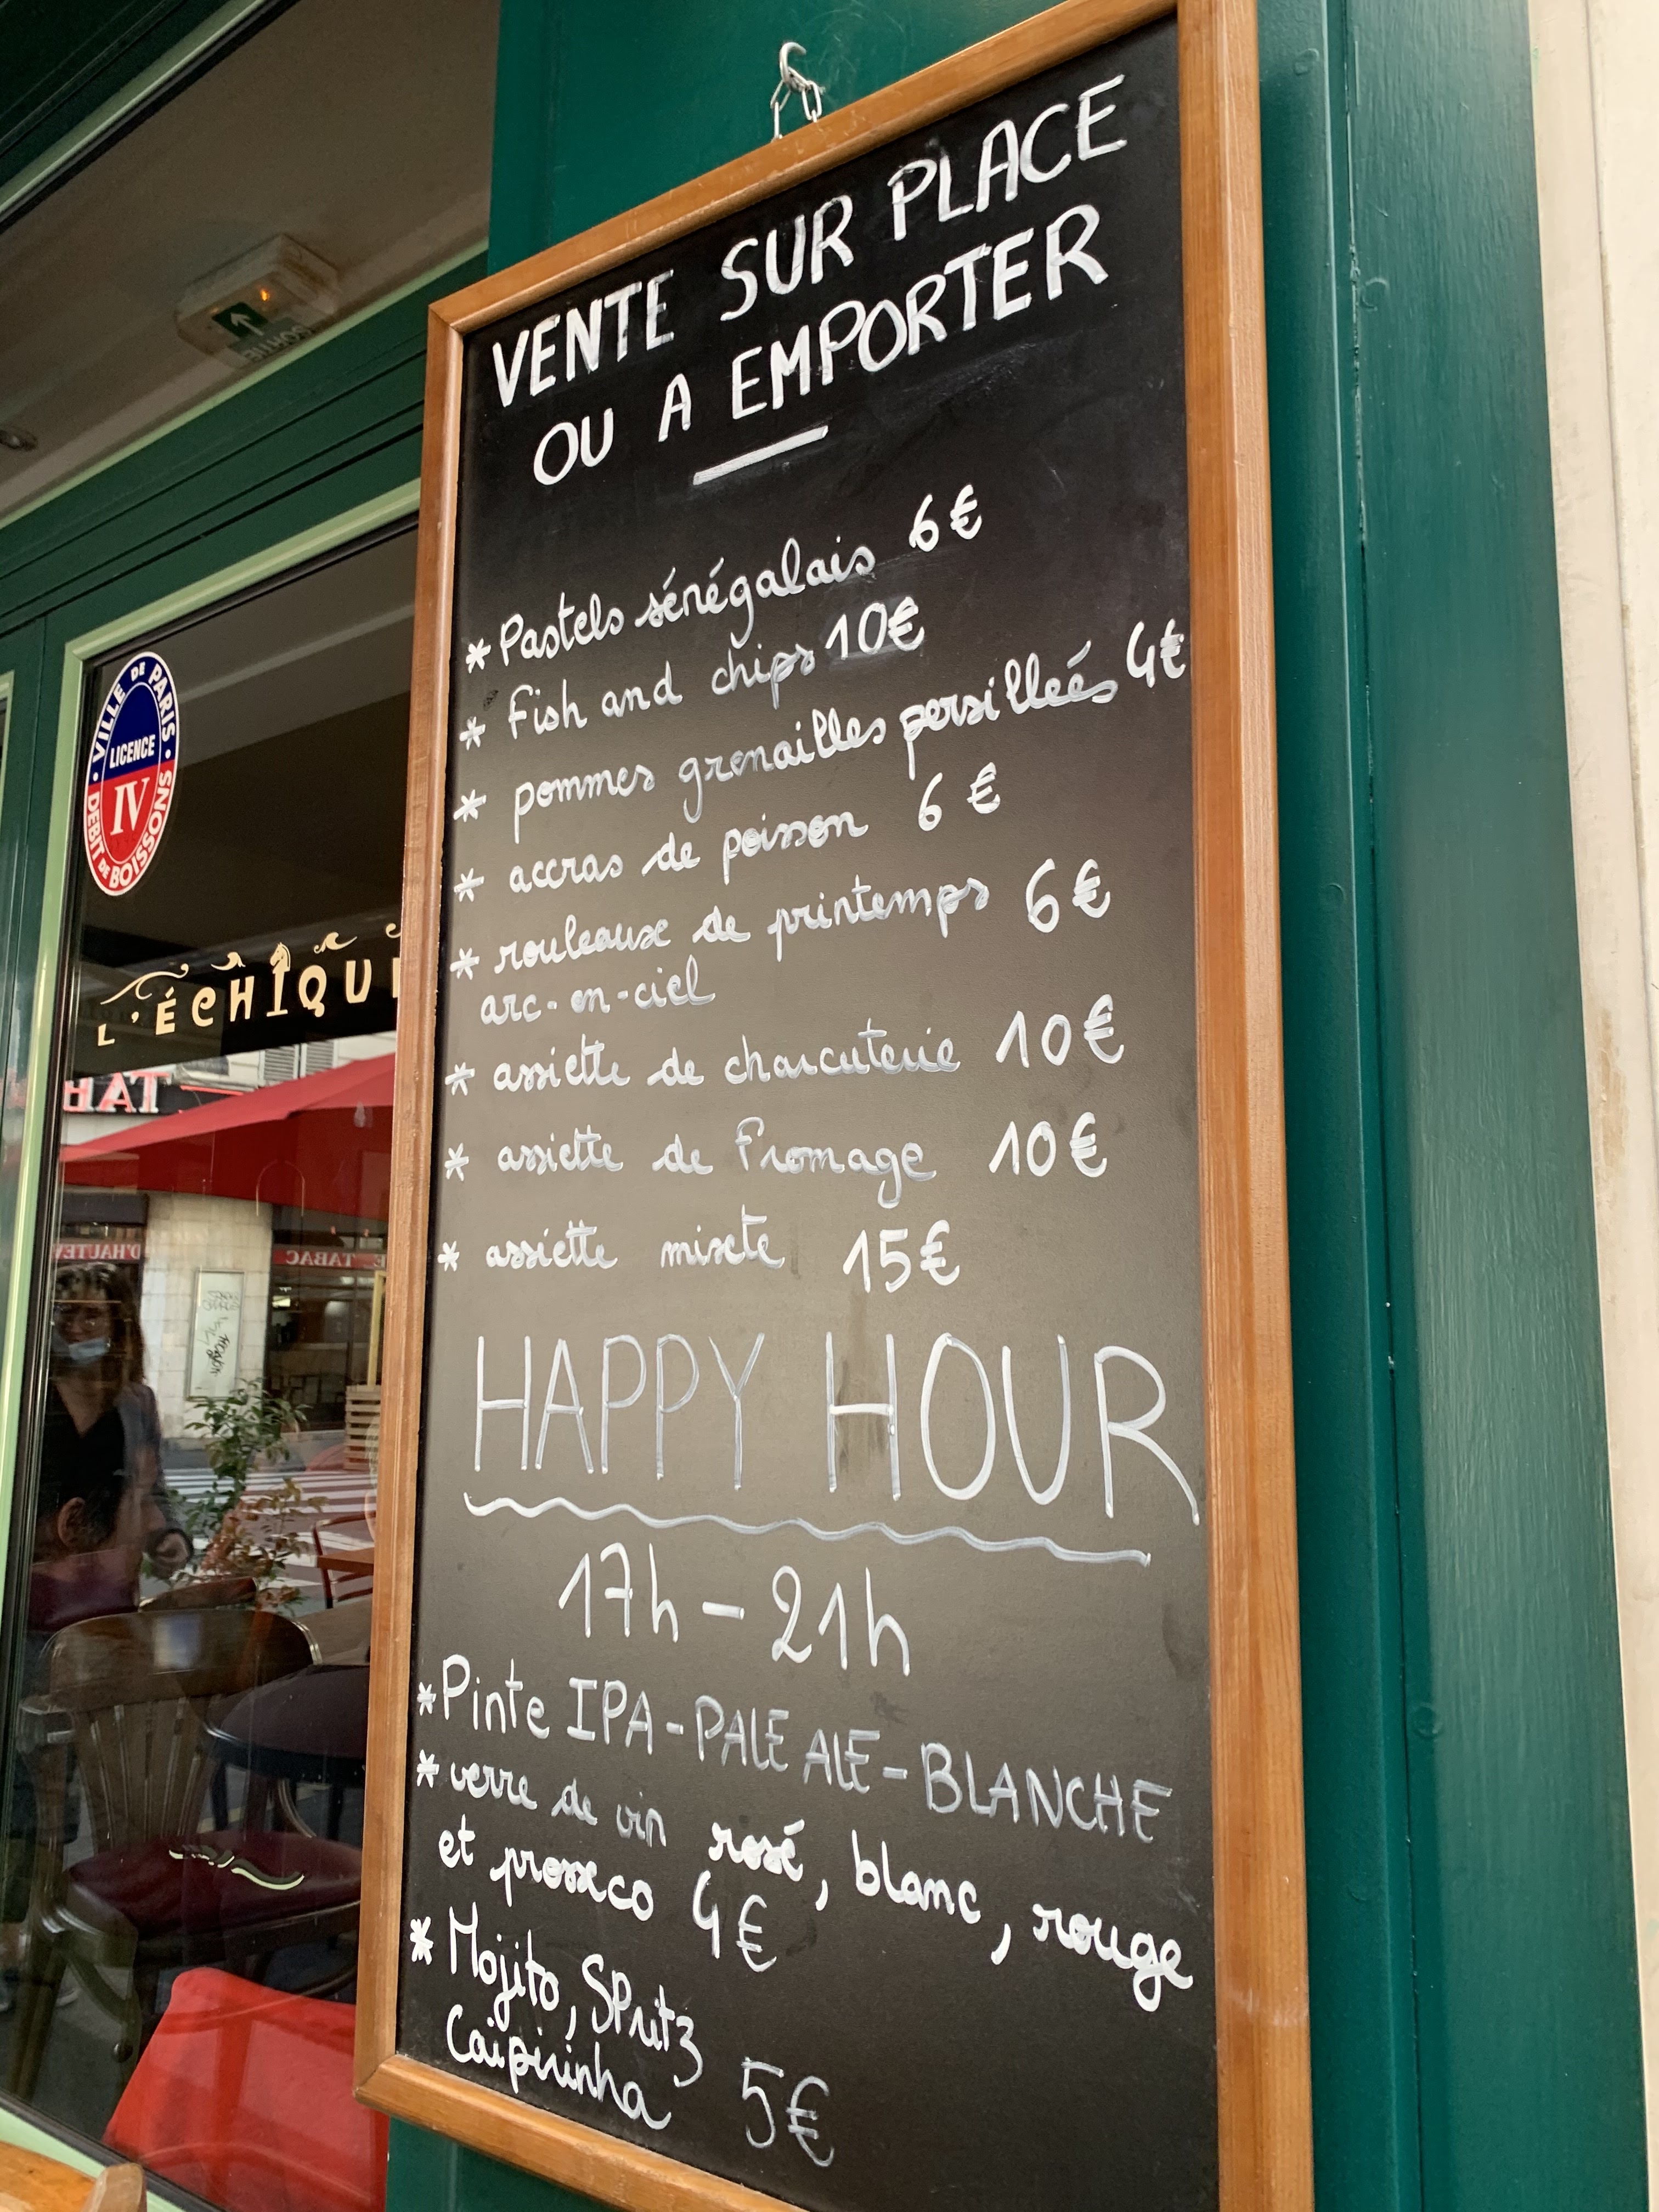 VENTE SUR PLACE
OU A EMPORTER
* Pastels sénégalais 6€
* Fish and chips 10€
* pommes grenailles persilleés 4€
* accras de poisson 6€
* rouleaux de printemps 6€
arc-en-ciel
* assiette de charcuterie 10€
* assiette de fromage 10€
* assiette mixte 15€
HAPPY HOUR
17h - 21h
* Pinte IPA - PALE ALE - BLANCHE
* verre de vin rosé, blanc, rouge
et prosseco 4€
* Mojito, SPritz
Caipirinha 5€
VILLE DE PARIS
LICENCE
IV
DEBIT DE BOISSONS
L'ÉCHIQU
TAB
D'HAUTEV
TABAC
SORTIE